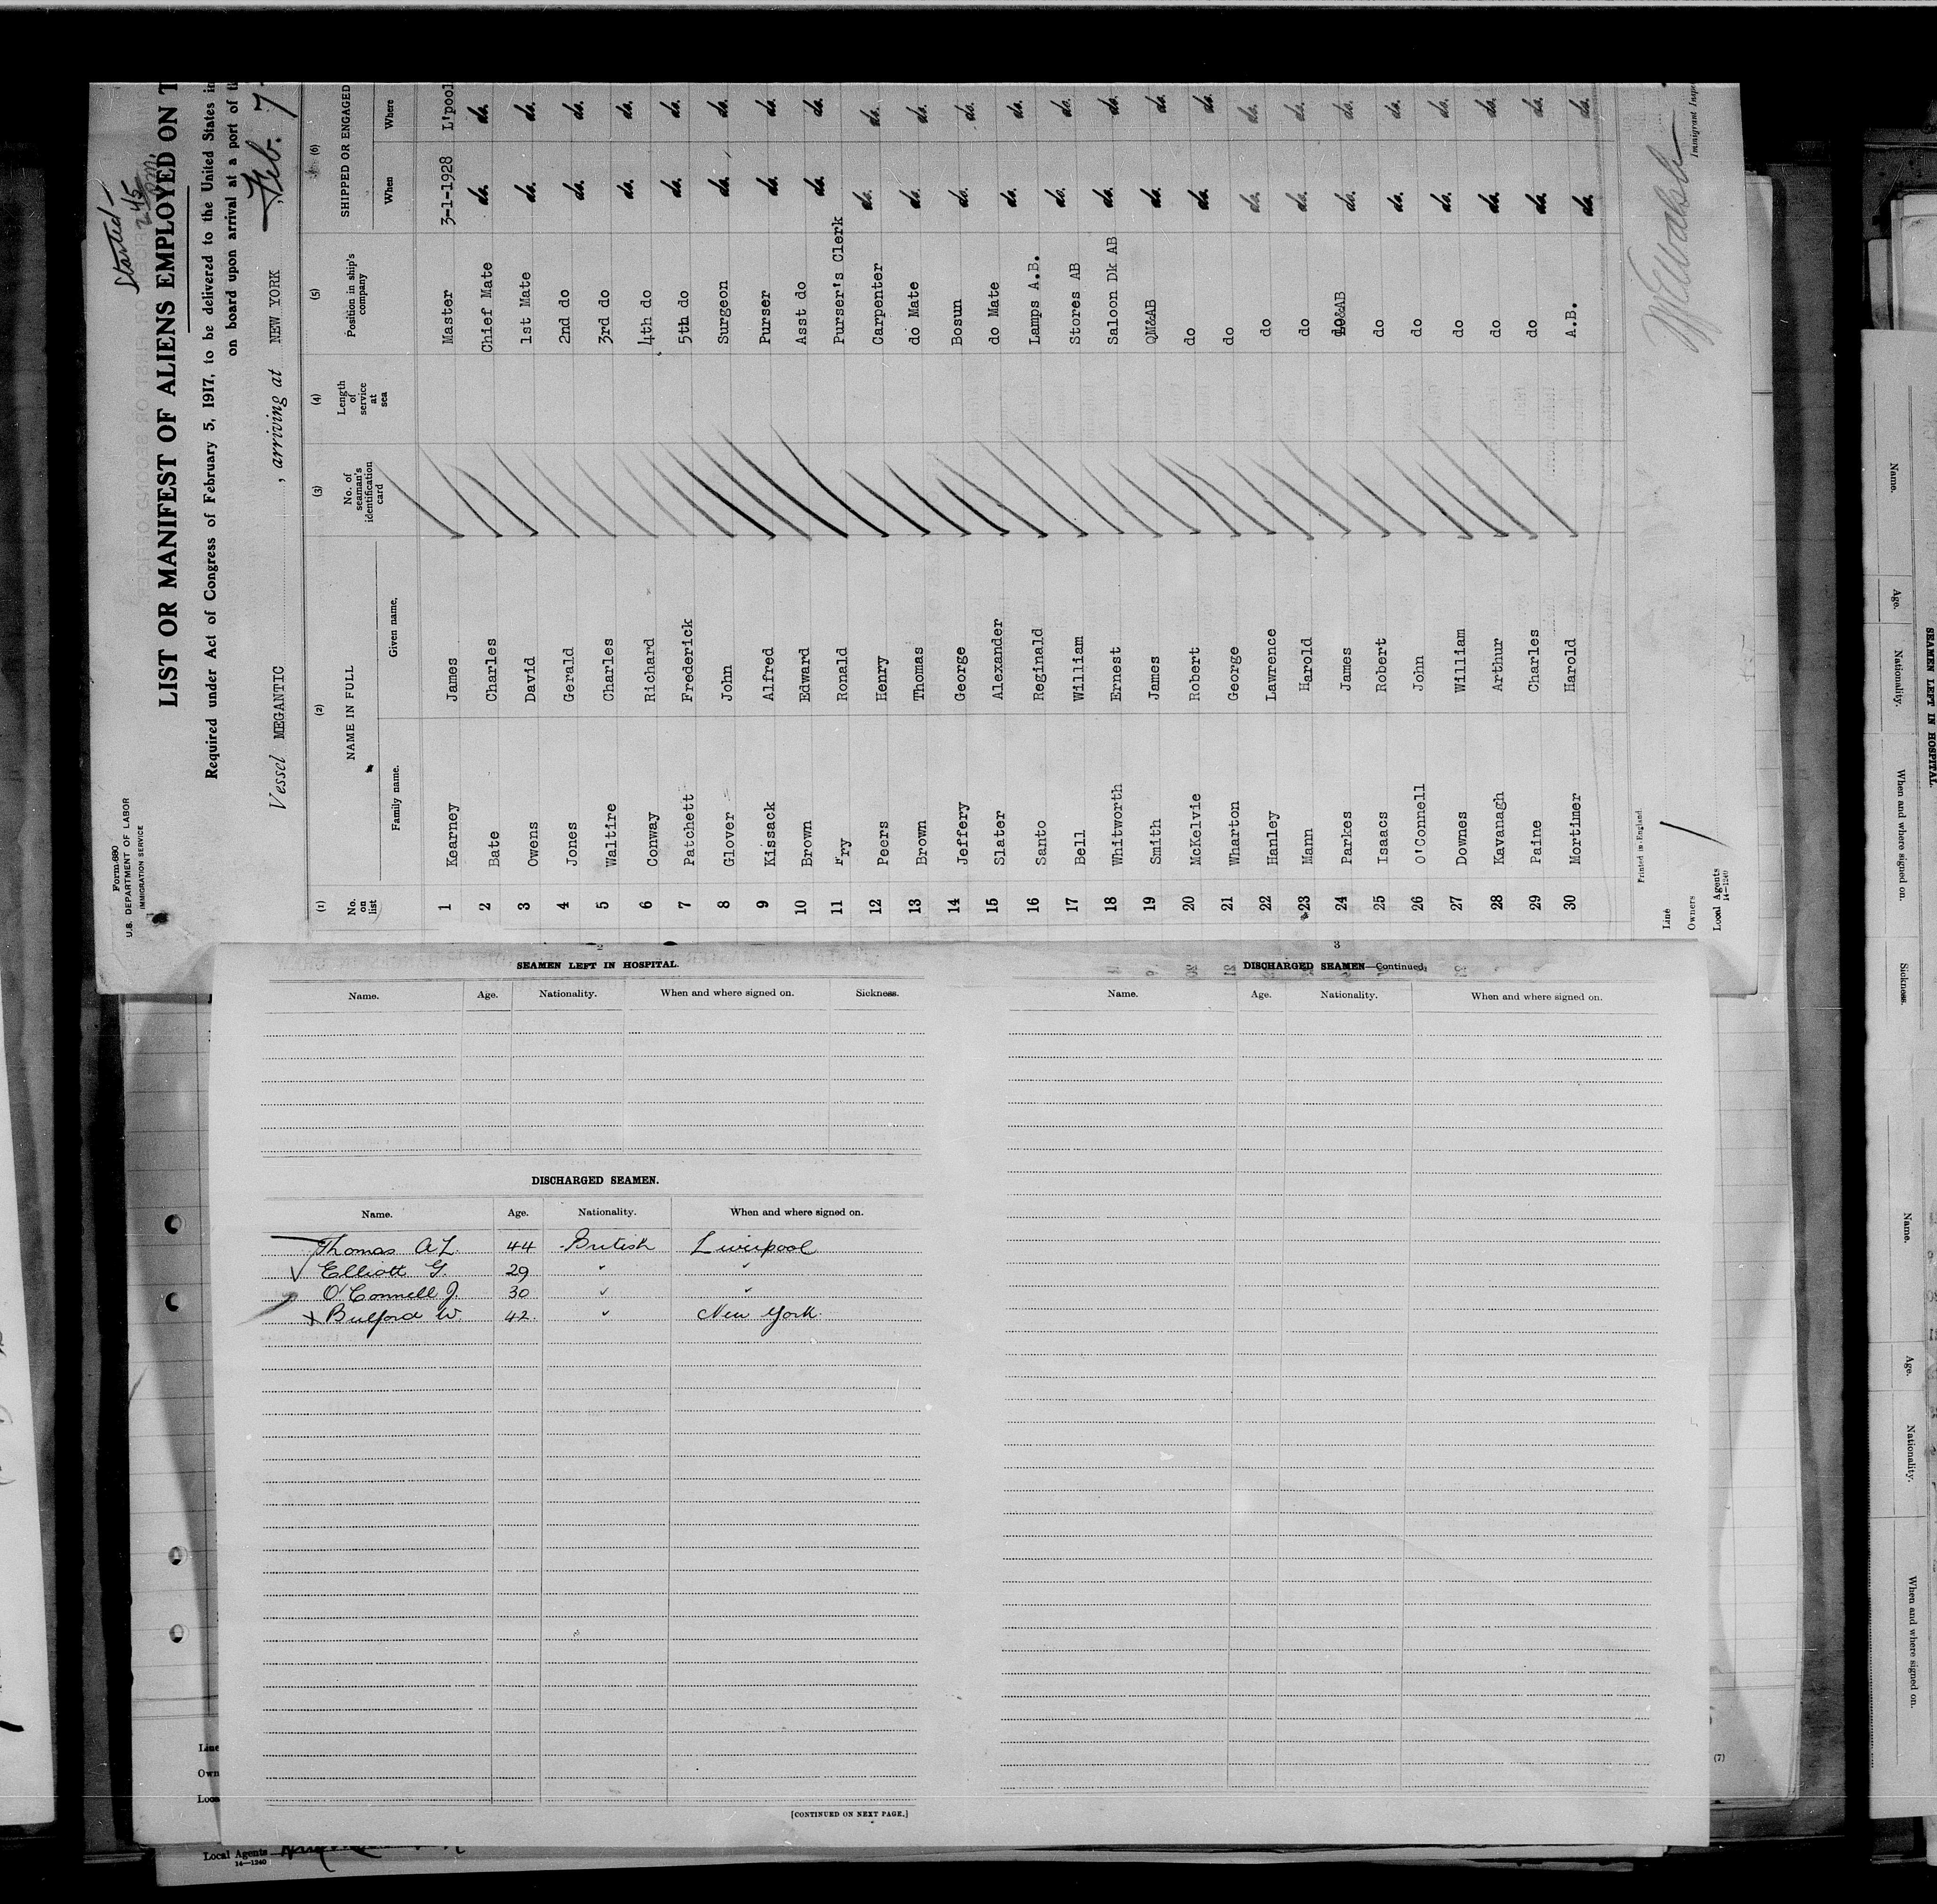 Form 680
U.S. DEPARTMENT OF LABOR
IMMIGRATION SERVICE
Started—
2 45
LIST OR MANIFEST OF ALIENS EMPLOYED ON T
Required under Act of Congress of February 5, 1917, to be delivered to the United States i
on board upon arrival at a port of t
Vessel MEGANTIC , arriving at NEW YORK Feb. 7
(1) (2) (3) (4) (5) (6)
No. on list NAME IN FULL No. of seaman's identification card Length of service at sea Position in ship's company SHIPPED OR ENGAGED
Family name. Given name. When Where
1 Kearney James Master 3-1-1928 L'pool
2 Bate Charles Chief Mate do. do.
3 Owens David 1st Mate do. do.
4 Jones Gerald 2nd do do. do.
5 Waltire Charles 3rd do do. do.
6 Conway Richard 4th do do. do.
7 Patchett Frederick 5th do do. do.
8 Glover John Surgeon do. do.
9 Kissack Alfred Purser do. do.
10 Brown Edward Asst do do. do.
11 ry Ronald Purser's Clerk
12 Peers Henry Carpenter do. do.
13 Brown Thomas do Mate do. do.
14 Jeffery George Bosun do. do.
15 Slater Alexander do Mate do. do.
16 Santo Reginald Lamps A.B. do. do.
17 Bell William Stores AB do. do.
18 Whitworth Ernest Saloon Dk AB do. do.
19 Smith James QM&AB do. do.
20 McKelvie Robert do do. do.
21 Wharton George do do. do.
22 Hanley Lawrence do do. do.
23 Mann Harold do do. do.
24 Parkes James &AB do. do.
25 Isacs Robert do do. do.
26 O'Connell John do do. do.
27 Downes William do do. do.
28 Kavanagh Arthur do do. do.
29 Paine Charles do do. do.
30 Mortimer Harold A.B. do. do.
Printed in England.
Line
Owners
Local Agents
14—1240
Immigrant Insp
2
SEAMEN LEFT IN HOSPITAL.
Name. Age. Nationality. When and where signed on. Sickness.
DISCHARGED SEAMEN.
Name. Age. Nationality. When and where signed on.
Thomas A L. 44 British Liverpool
Elliott G. 29 " "
O'Connell J. 30 " "
x Bulford W. 42. " New York.
[CONTINUED ON NEXT PAGE.]
3
DISCHARGED SEAMEN—Continued.
Name. Age. Nationality. When and where signed on.
Line
Own
Loca
Local Agents
14—1240
(7)
SEAMEN LEFT IN HOSPITAL.
Name. Age. Nationality. When and where signed on. Sickness.
Name. Age. Nationality. When and where signed on.